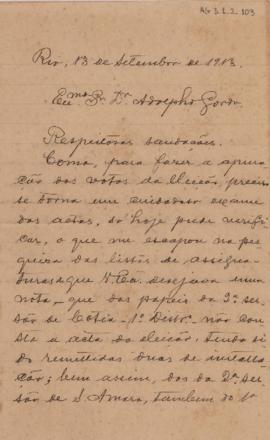 AG 3.1.2.103
Rio, 13 de Setembro de 1913.
Exmo. Sr. Dr. Adolpho Gordo.
Respeitosas saudações.
Como, para fazer a apura-
ção dos votos da eleição, preciso
se torna um cuidadoso exame
das actas, só hoje pude verifi-
car, o que me escapou na pes-
quiza das listas de assigna-
turas de que V. Exa. desejava uma
nota, - que dos papeis da 3ª sec-
são de Cotia - 1º Distr. - não cons-
ta a acta da eleição, tendo si-
do remettidas duas de installa-
ção; bem assim, dos da 2ª sec-
são de S. Amaro, tambem do 1º